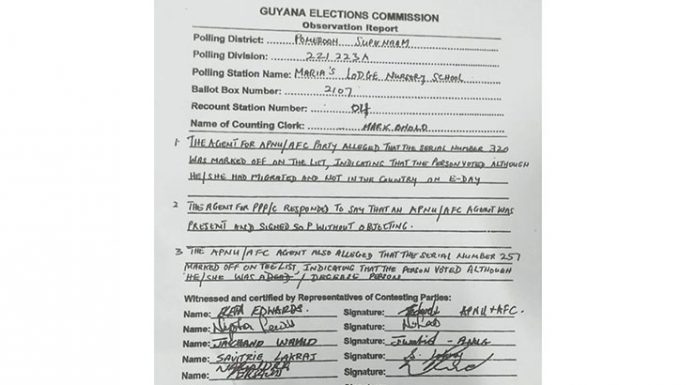 GUYANA ELECTIONS COMMISSION
Observation Report
Polling District: POMEROON SUPENAAM
Polling Division: 221223A
Polling Station Name: MARIA'S LODGE NURSERY SCHOOL
Ballot Box Number: 2107
Recount Station Number: 04
Name of Counting Clerk: MARK
1 THE AGENT FOR APNU/AFC PARTY ALLEGED THAT THE SERIAL NUMBER 320
WAS MARKED OFF ON THE LIST, INDICATING THAT THE PERSON VOTED ALTHOUGH
HE/SHE HAD MIGRATED AND NOT IN THE COUNTRY ON E-DAY
2 THE AGENT FOR PPP/C RESPONDED TO SAY THAT AN APNU/AFC AGENT WAS
PRESENT AND SIGNED SOP WITHOUT OBJECTING.
3 THE APNU/AFC AGENT ALSO ALLEGED THAT THE SERIAL NUMBER 257
MARKED OFF ON THE LIST, INDICATING THAT THE PERSON VOTED ALTHOUGH
HE/SHE WAS A DEAD / PERSON
Witnessed and certified by Representatives of Contesting Parties:
Name: EDWARDS. Signature: APNU+AFC.
Name: Lewis Signature:
Name: JAICHAND Signature:
Name: SAVITRIE LAKRAJ Signature:
Name: Signature: